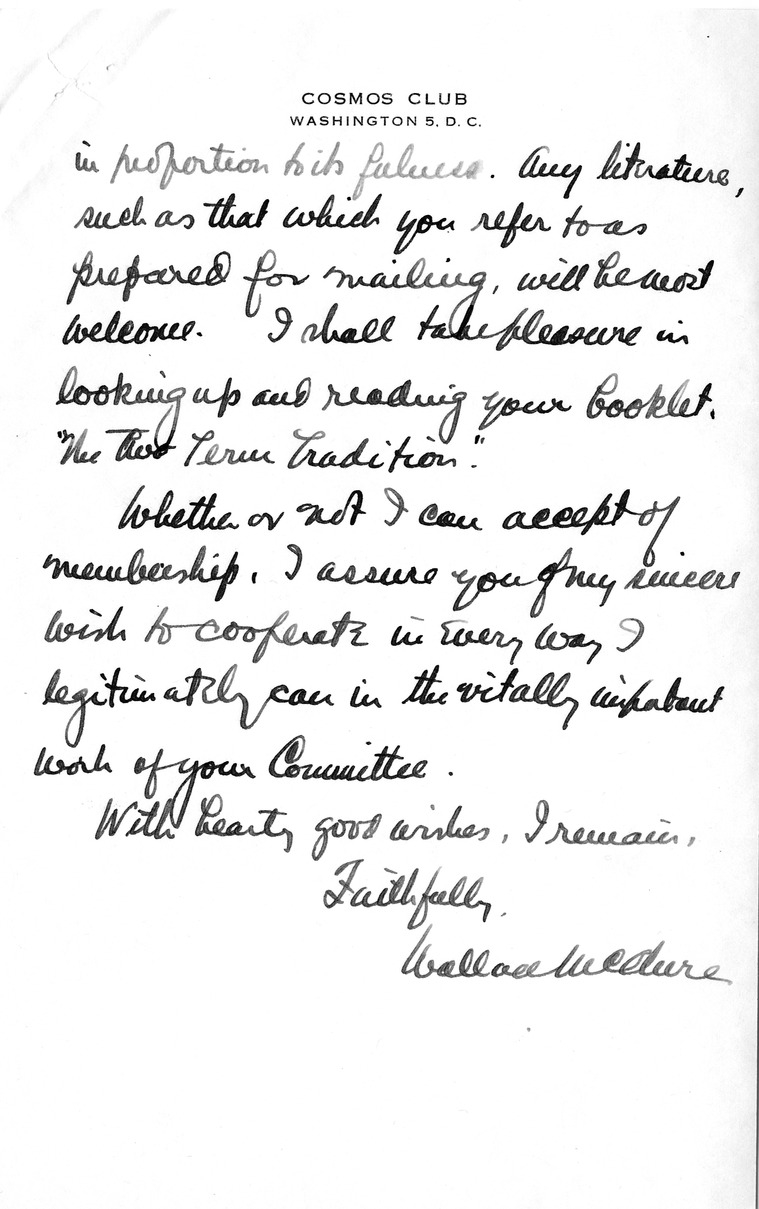 COSMOS CLUB
WASHINGTON 5, D. C.
in proportion to its fulness. Any literature,
such as that which you refer to as
prepared for mailing, will be most
welcome. I shall take pleasure in
looking up and reading your booklet,
"The Two Term Tradition".
Whether or not I can accept of
membership, I assure you of my sincere
wish to cooperate in every way I
legitimately can in the vitally important
work of your Committee.
With hearty good wishes, I remain,
Faithfully,
Wallace McClure